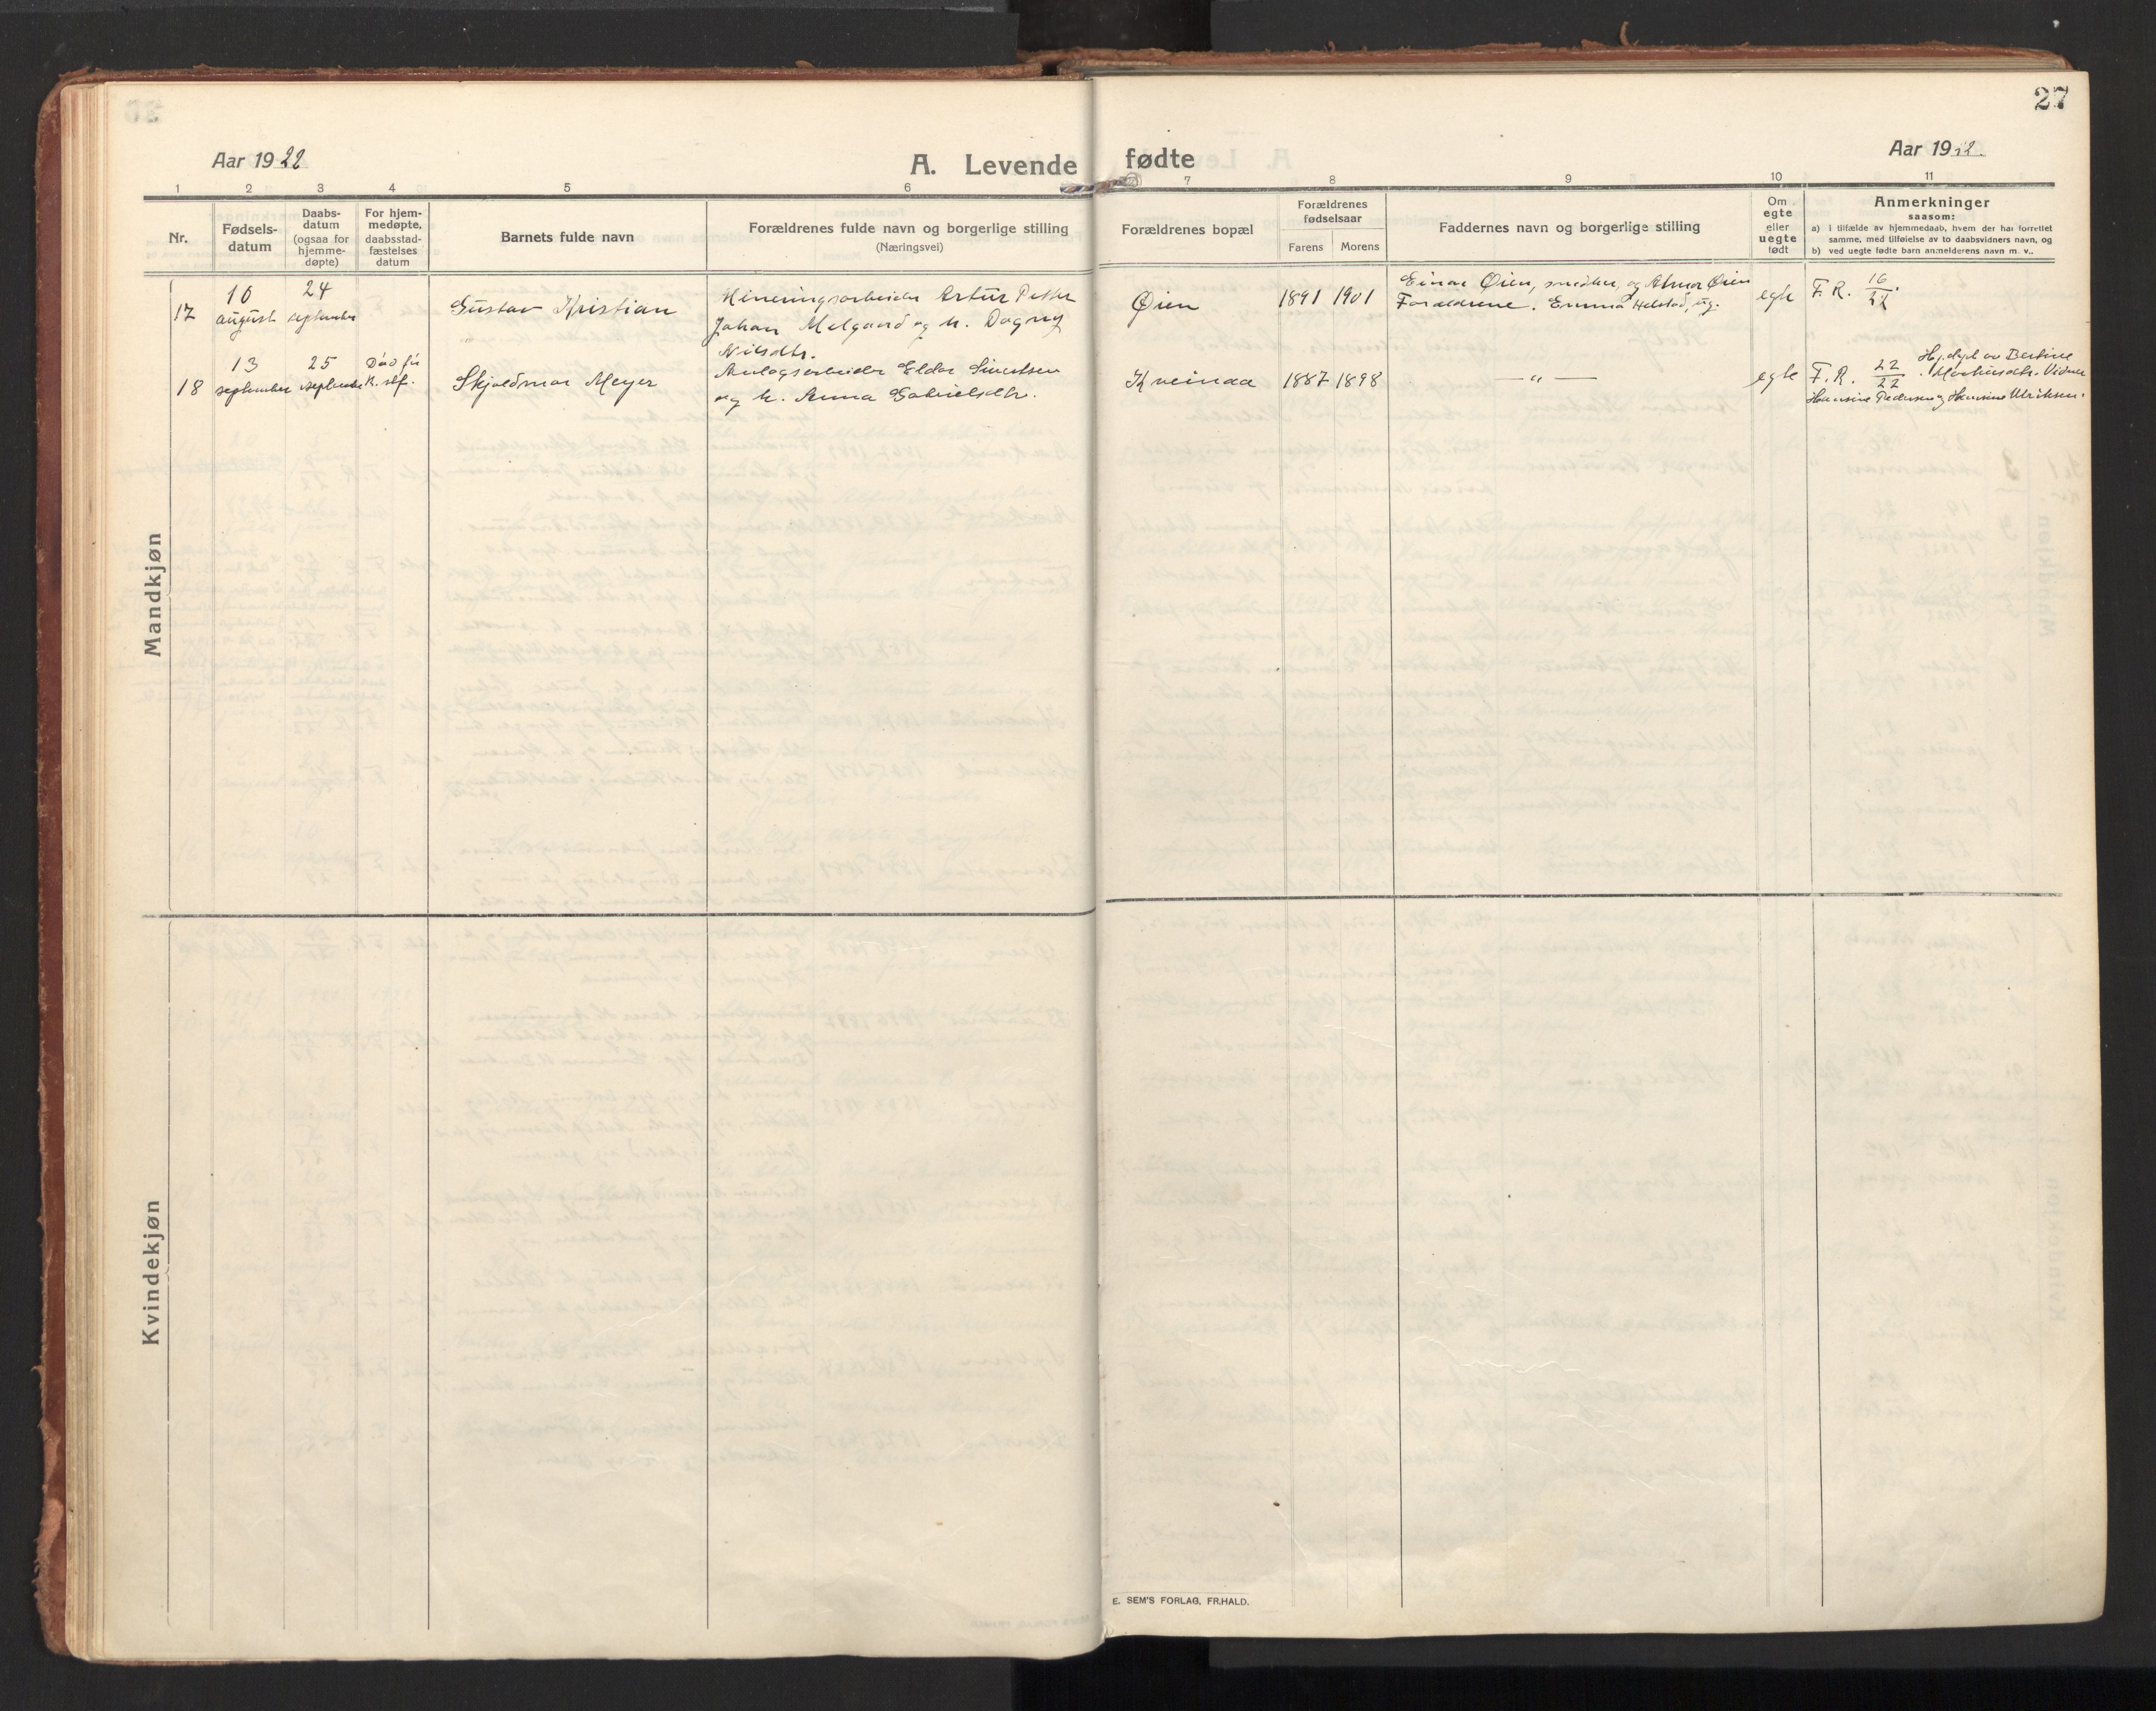 27
Aar 1922
A. Levende fødte
Aar 1922.
1 2 3 4 5 6 7 8 9 10 11
Nr.
Fødsels-
datum
Daabs-
datum
(ogsaa for
hjemme-
døpte)
For hjem-
medøpte,
daabsstad-
fæstelses
datum
Barnets fulde navn
Forældrenes fulde navn og borgerlige stilling
(Næringsvei)
Forældrenes bopæl
Forældrenes
fødselsaar
Farens Morens
Faddernes navn og borgerlige stilling
Om
egte
eller
uegte
født
Anmerkninger
saasom:
a) i tilfælde av hjemmedaab, hvem der har forrettet
samme, med tilføielse av to daabsvidners navn, og
b) ved uegte fødte barn anmelderens navn m. v..
Mandkjøn
17
10
august
24
september
Gustav Kristian
Mineringsarbeider Artur Petter
Johan Melgaard og h. Dagny
Nilsdtr.
Øien
1891 1901
Einar Øien, snedker, og Almar Øien
Forældrene. Emma Helstad, ug.
egte
F. R. 16/22.
18
13
september
25
september
Død før
K. stf.
Skjoldmar Meyer
Anlagsarbeider Eldor Sivertsen
og h. Anna Gabrielsdtr.
Kveinaa
1887 1898
— „ —
egte
F. R. 22/22.
Hj.døpt av Bertine
Martinsdtr. Vidner
Hansine Pedersen og Hansine Ulriksen.
Kvindekjøn
E. SEM'S FORLAG, FR.HALD.